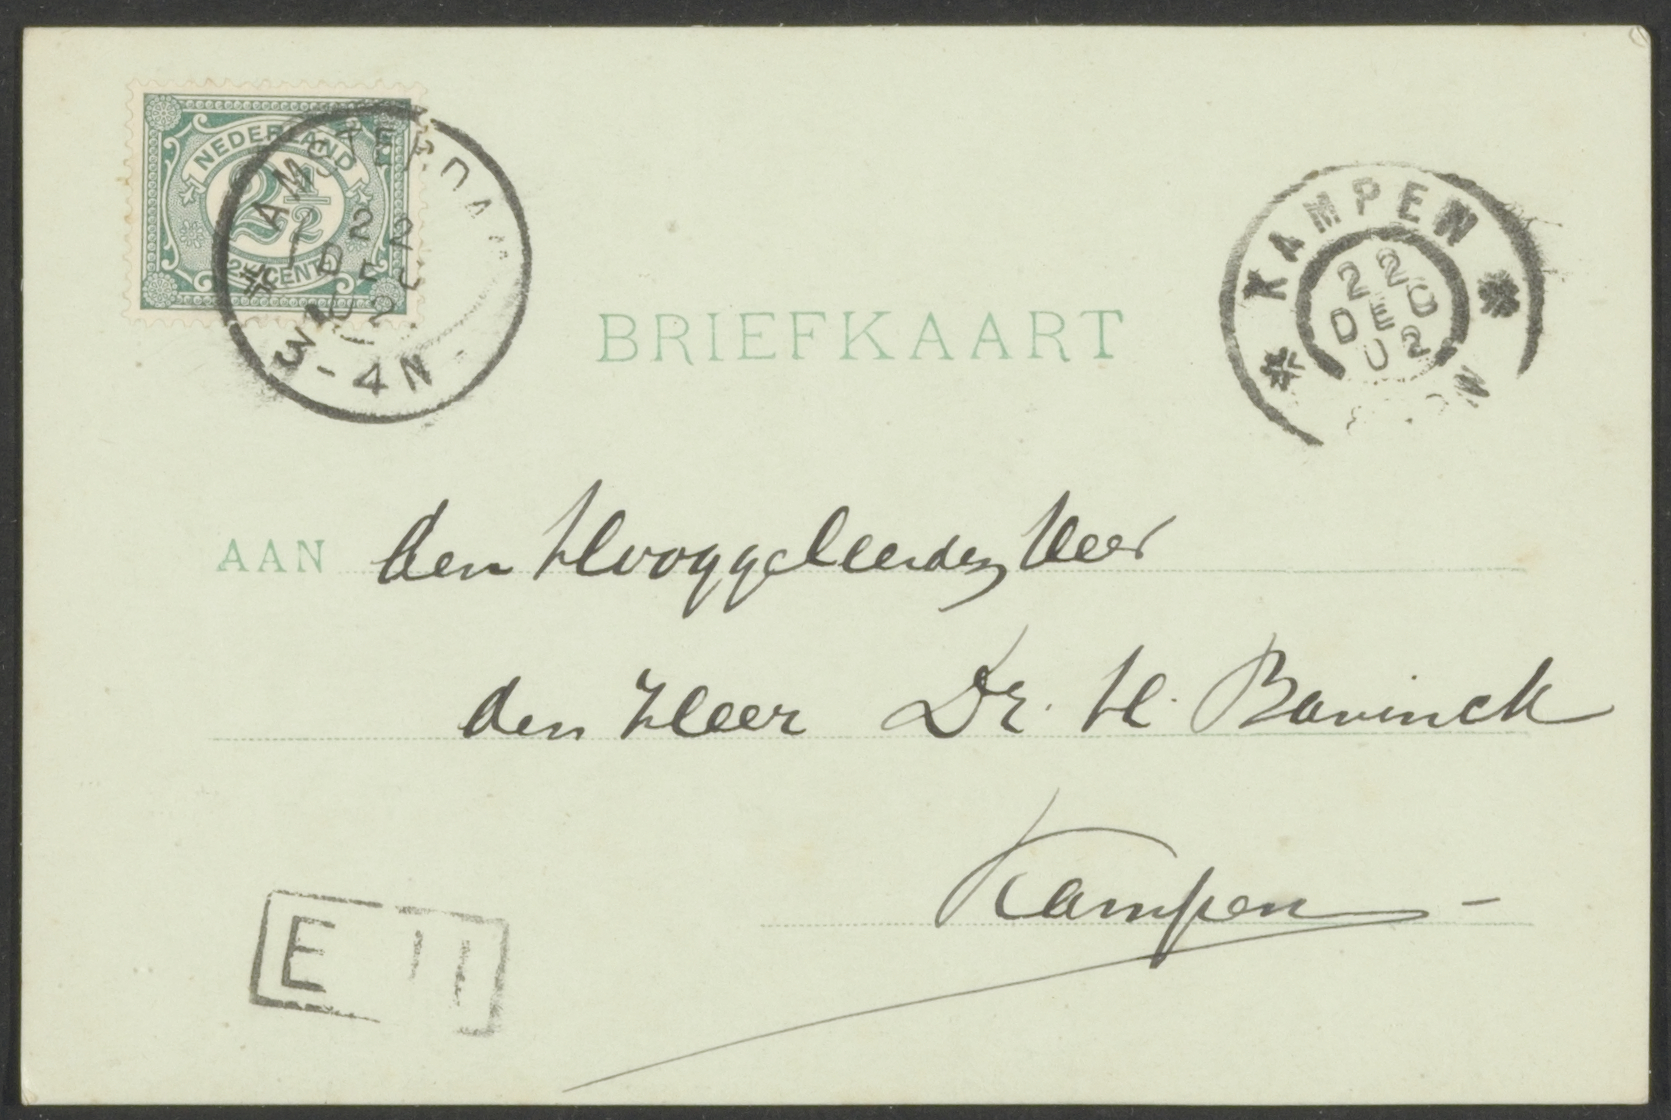 NEDERLAND
2 1/2
2½ CENT
AMSTERDAM
22
DE
3-4N
KAMPEN
22
DE
02
BRIEFKAART
AAN den Hooggeleerden Heer
den Heer Dr. H. Bavinck
Kampen –
E 11